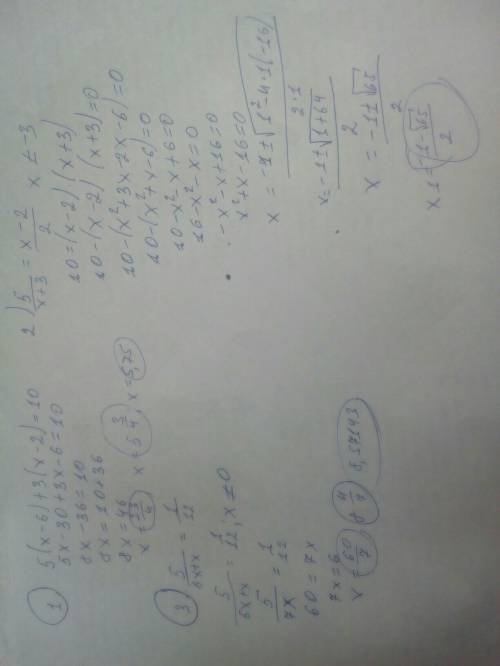 1 5(x-6)+3(x-2)=10
5x-30+3x-6=10
8x-36=10
8x=10+36
8x=46
x=23/4 x=5 3/4, x=5,75
3 5/6x+x=1/12
5/6x+x=1/12; x≠0
5/7x=1/12
60=7x
7x=6
x=60/7 8 4/7 8,57143
2) 5/x+3=x-2/2 x≠-3
10=(x-2)·(x+3)
10-(x-2)·(x+3)=0
10-(x²+3x-2x-6)=0
10-(x²+x-6)=0
10-x²-x+6=0
16-x²-x=0
-x²-x+16=0
x²+x-16=0
x=-1±√1²-4·1(-16)/2·1
x=-1±√1+64/2
x=-1±√65/2
x1=-1-√65/2